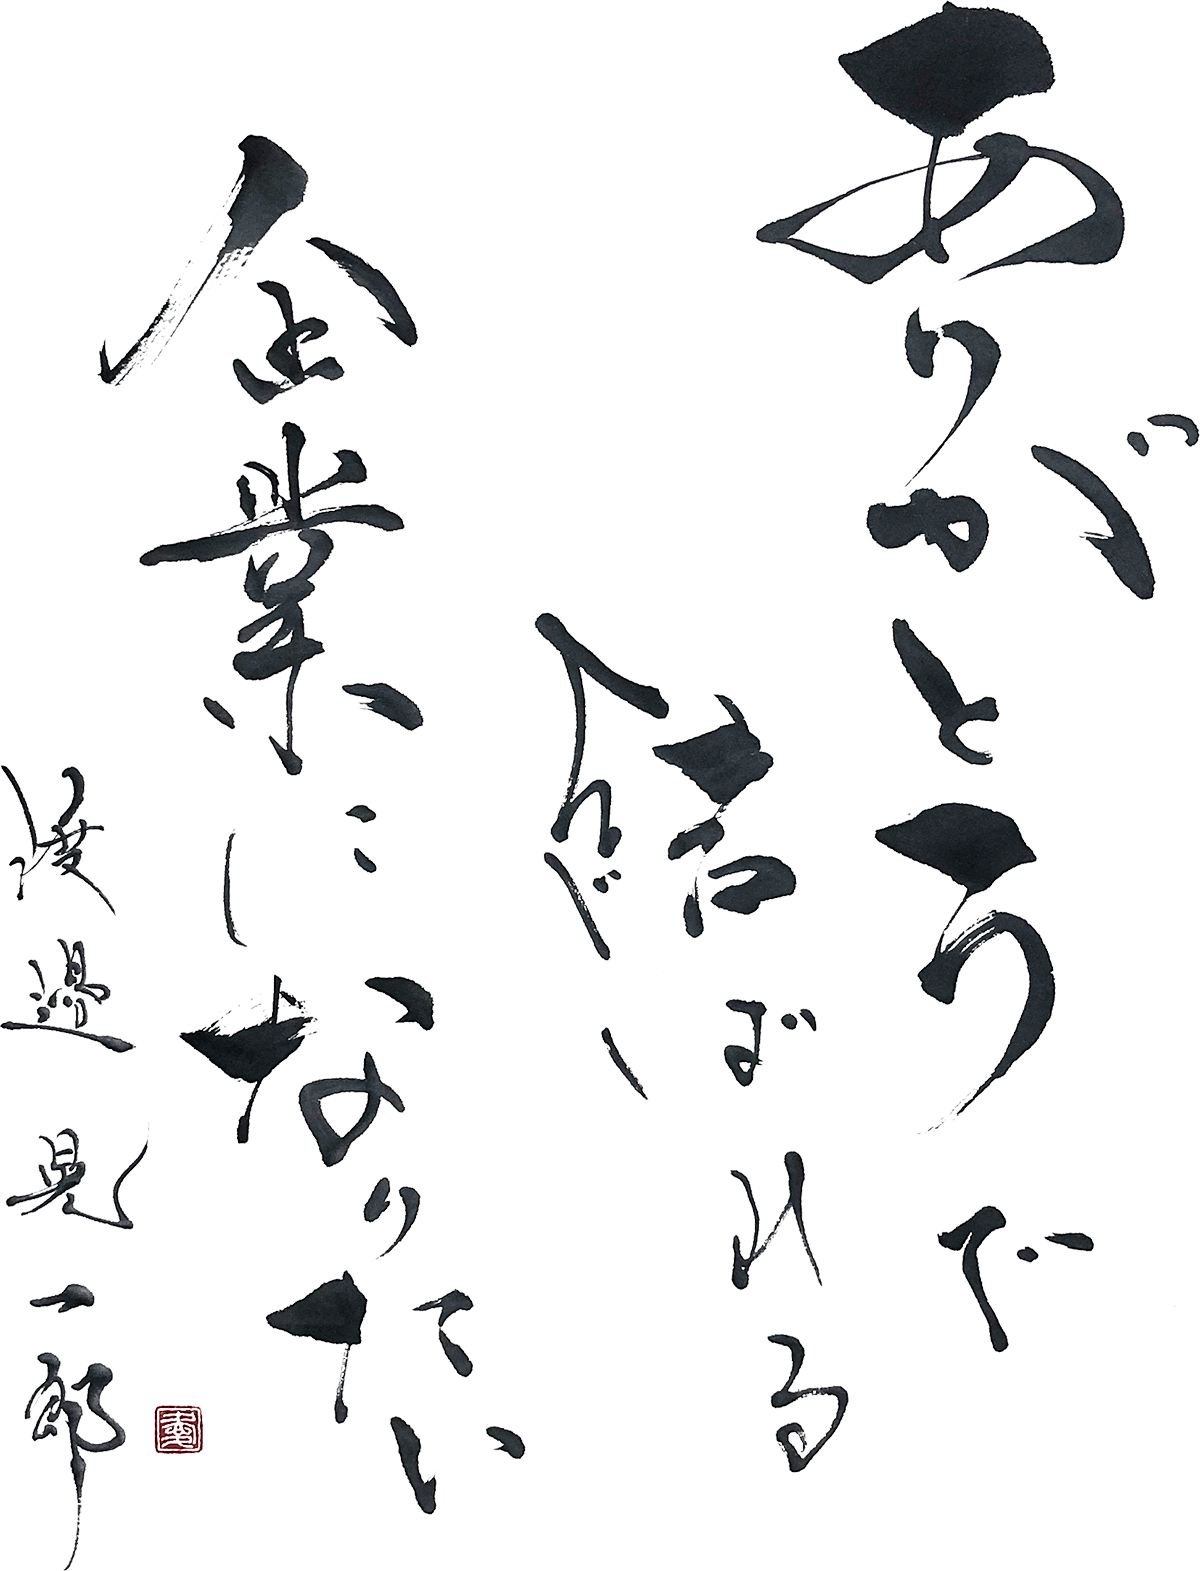 ありがとうで
結ばれる
企業になりたい
渡邉晃一郎